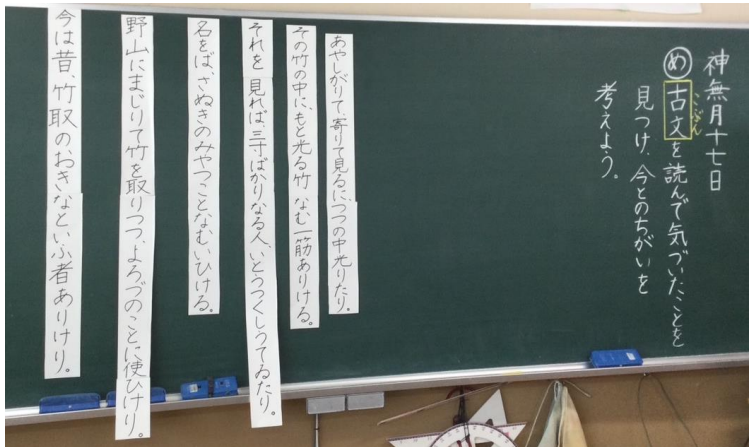 神無月十七日
め 古文を読んで気づいたことを
こぶん
見つけ、今とのちがいを
考えよう。
あやしがりて、寄りて見るに、つつの中光りたり。
その竹の中に、もと光る竹なむ一筋ありける。
それを見れば、三寸ばかりなる人、いとうつくしうてゐたり。
名をば、さぬきのみやつことなむいひける。
野山にまじりて竹を取りつつ、よろづのことに使ひけり。
今は昔、竹取のおきなといふ者ありけり。